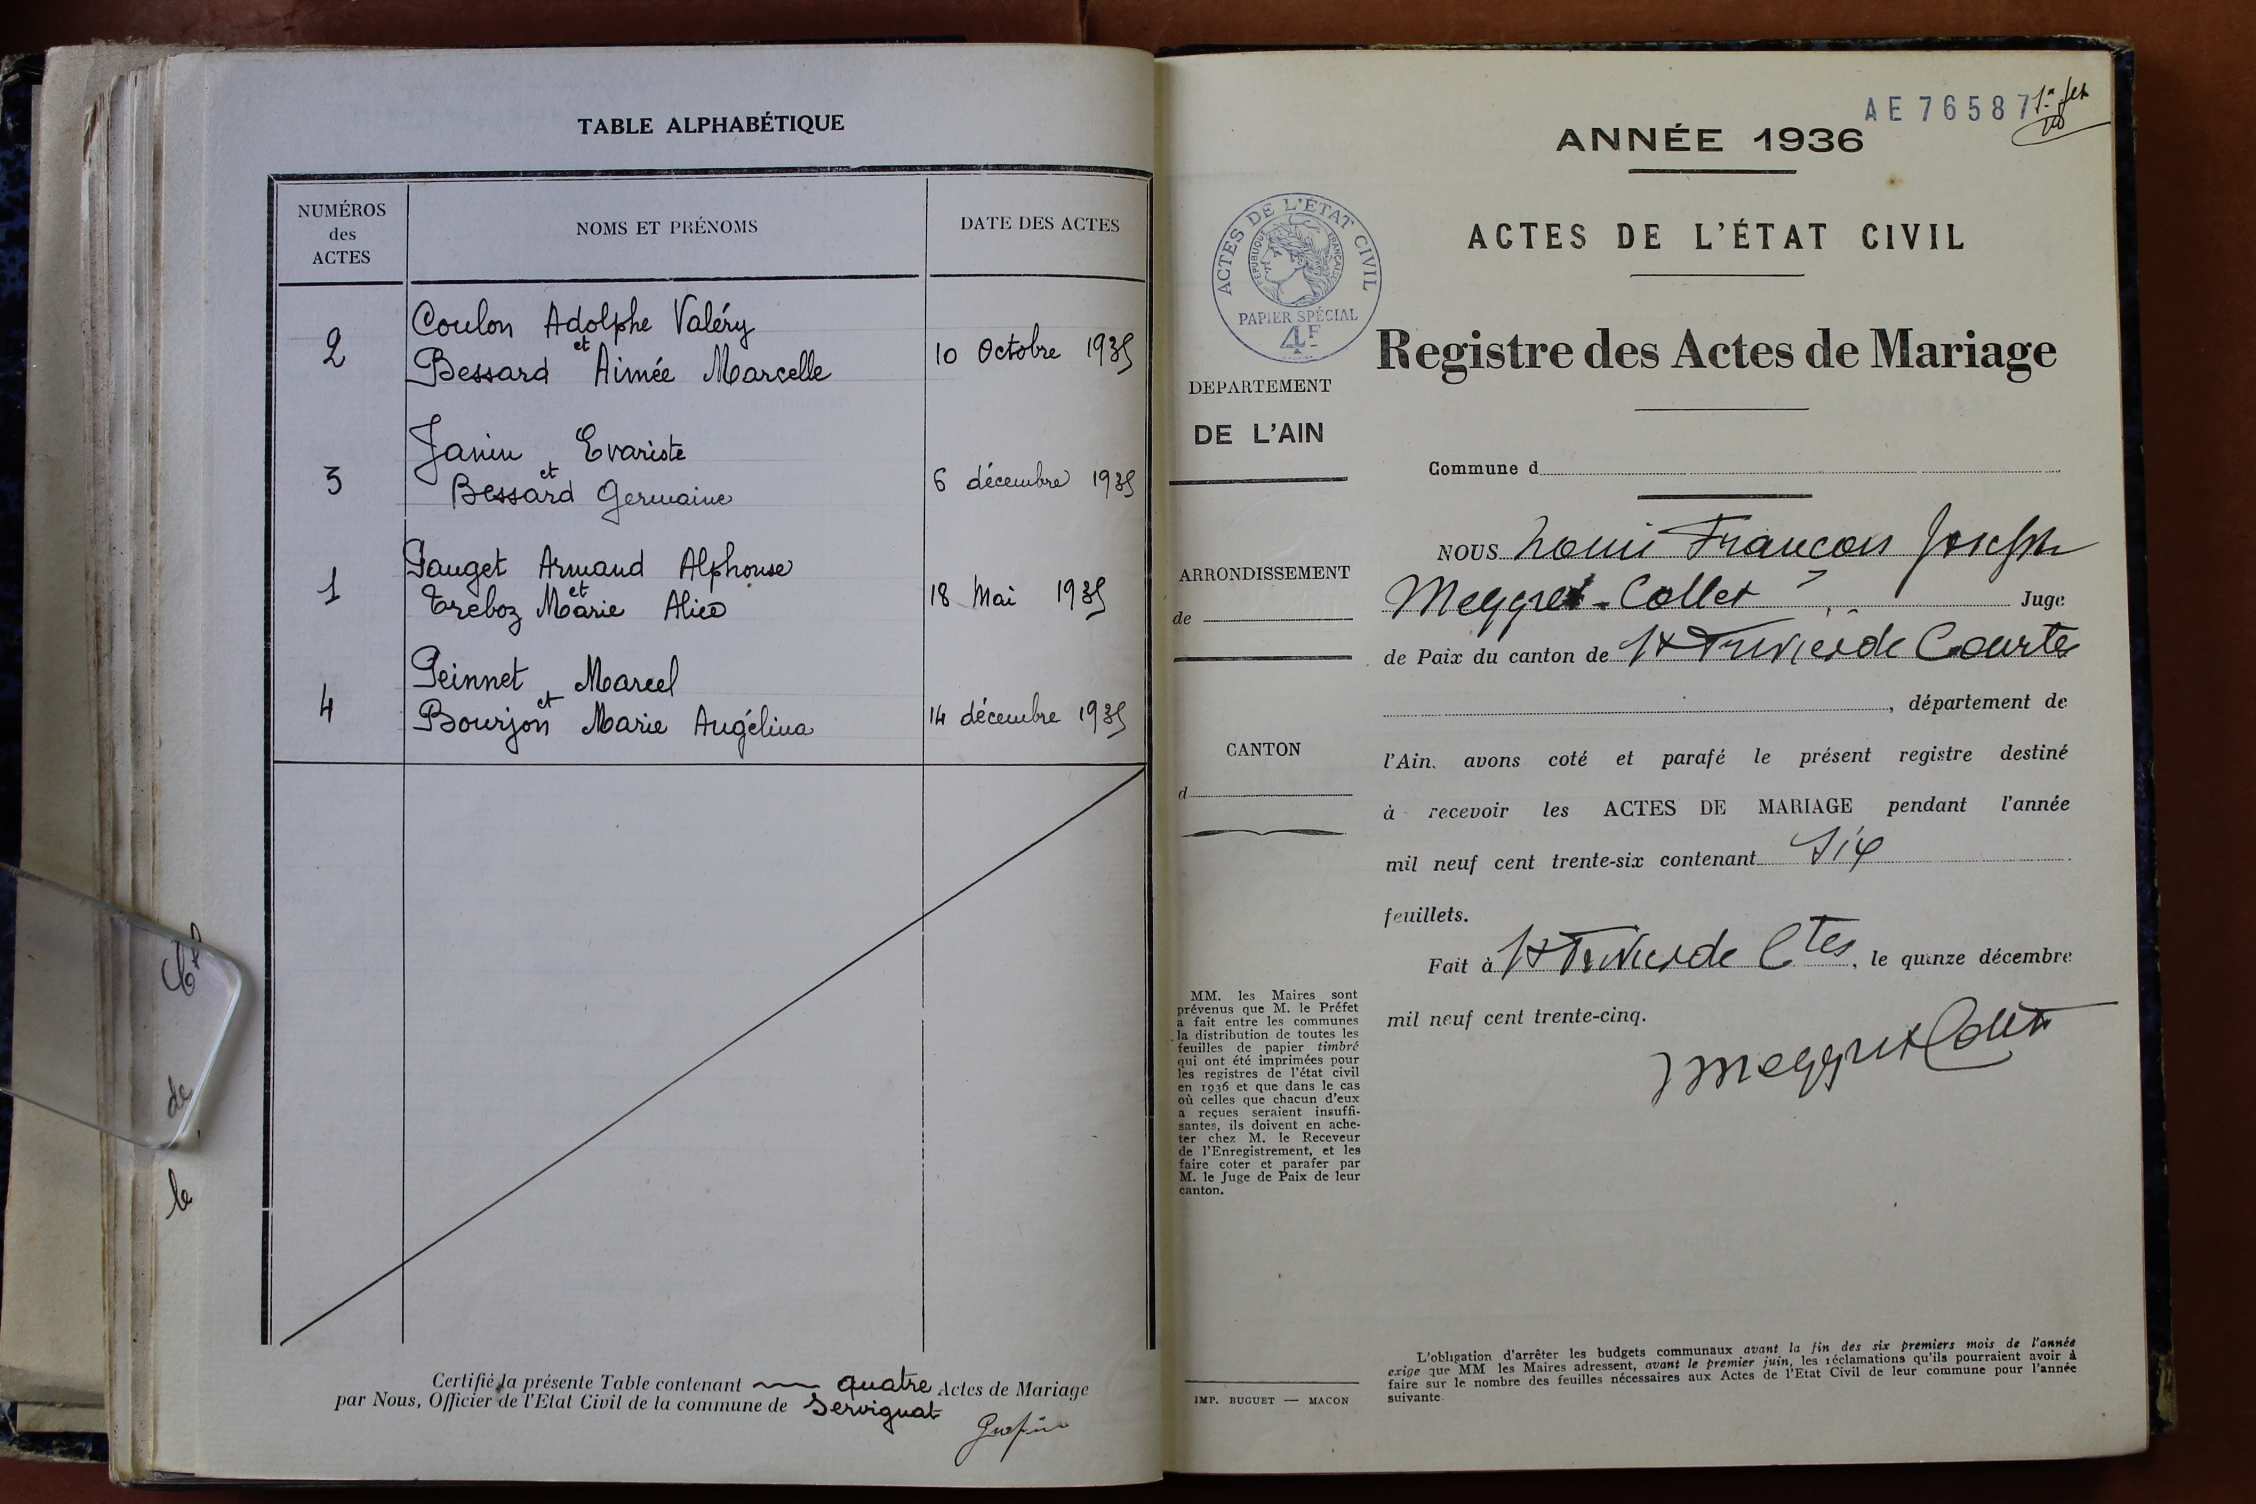 TABLE ALPHABÉTIQUE
NUMÉROS
des
ACTES
NOMS ET PRÉNOMS
DATE DES ACTES
2
Coulon Adolphe Valéry
et
Bessard Aimée Marcelle
10 Octobre 1935
3
Janin Evariste
et
Bessard Germaine
6 décembre 1935
1
Pauget Armand Alphonse
et
Treboz Marie Alice
18 Mai 1935
4
Peinnet Marcel
et
Bourjon Marie Angélina
14 décembre 1935
Certifié la présente Table contenant quatre Actes de Mariage
par Nous, Officier de l'Etat Civil de la commune de Servignat
de
le
AE 76587
ANNÉE 1936
ACTES DE L'ÉTAT CIVIL
ACTES DE L'ÉTAT CIVIL
RÉPUBLIQUE FRANÇAISE
PAPIER SPÉCIAL
4F
Registre des Actes de Mariage
DEPARTEMENT
DE L'AIN
Commune d
NOUS Louis François Joseph
ARRONDISSEMENT
de
Meggret-Collet Juge
de Paix du canton de St Trivier de Courtes
, département de
CANTON
d
l'Ain. avons coté et parafé le présent registre destiné
à recevoir les ACTES DE MARIAGE pendant l'année
mil neuf cent trente-six contenant six
feuillets.
Fait à St Trivier de Ctes, le quinze décembre
mil neuf cent trente-cinq.
Meggret Collet
MM. les Maires sont
prévenus que M. le Préfet
a fait entre les communes
la distribution de toutes les
feuilles de papier timbré
qui ont été imprimées pour
les registres de l'état civil
en 1936 et que dans le cas
où celles que chacun d'eux
a reçues seraient insuffi-
santes, ils doivent en ache-
ter chez M. le Receveur
de l'Enregistrement, et les
faire coter et parafer par
M. le Juge de Paix de leur
canton.
IMP. BUGUET — MACON
L'obligation d'arrêter les budgets communaux avant la fin des six premiers mois de l'année
exige que MM les Maires adressent, avant le premier juin, les réclamations qu'ils pourraient avoir à
faire sur le nombre des feuilles nécessaires aux Actes de l'Etat Civil de leur commune pour l'année
suivante.